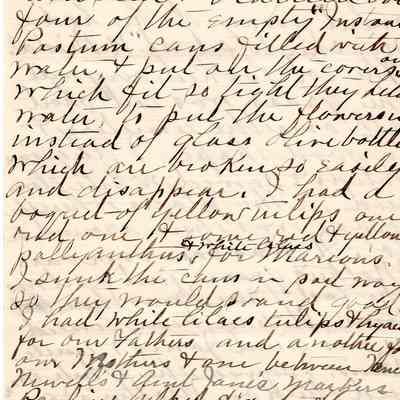 four of the empty "Instant
Postum" cans filled with
water & put on the covers
which fit so tight they held
water, to put the flowers in
instead of glass olive bottles
which are broken so easily
and disappear. I had a
boquet of yellow tulips one
red one & some red & yellow
& white lilacs
pollyanthus, for Marion's.
I sunk the cans in part way
so they would stand good
I had white lilacs tulips &
for our Fathers and another for
our Mothers & one between
Newells & Aunt Janes Markers